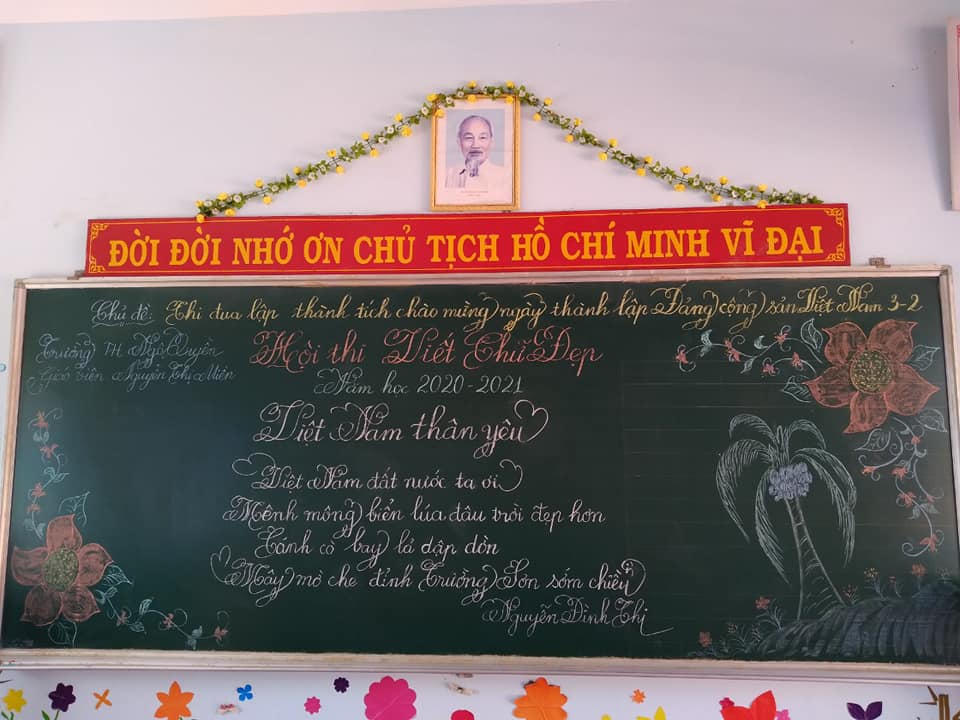 ĐỜI ĐỜI NHỚ ƠN CHỦ TỊCH HỒ CHÍ MINH VĨ ĐẠI
Chủ đề: Thi đua lập thành tích chào mừng ngày thành lập Đảng cộng sản Việt Nam 3-2
Trường TH Ngô Quyền
Giáo viên Nguyễn Thị Miên
Hội thi Viết Chữ Đẹp
Năm học 2020-2021
Việt Nam thân yêu
Việt Nam đất nước ta ơi
Mênh mông biển lúa đâu trời đẹp hơn
Cánh cò bay lả dập dờn
Mây mờ che đỉnh Trường Sơn sớm chiều
Nguyễn Đình Thi